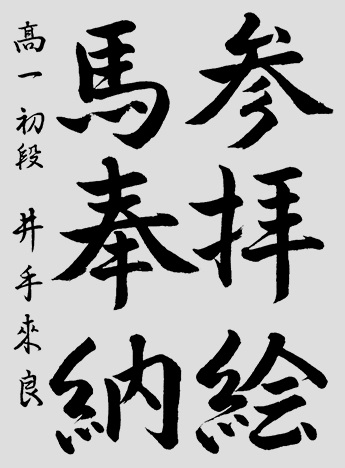 参拝絵
馬奉納
高一初段 井手來良